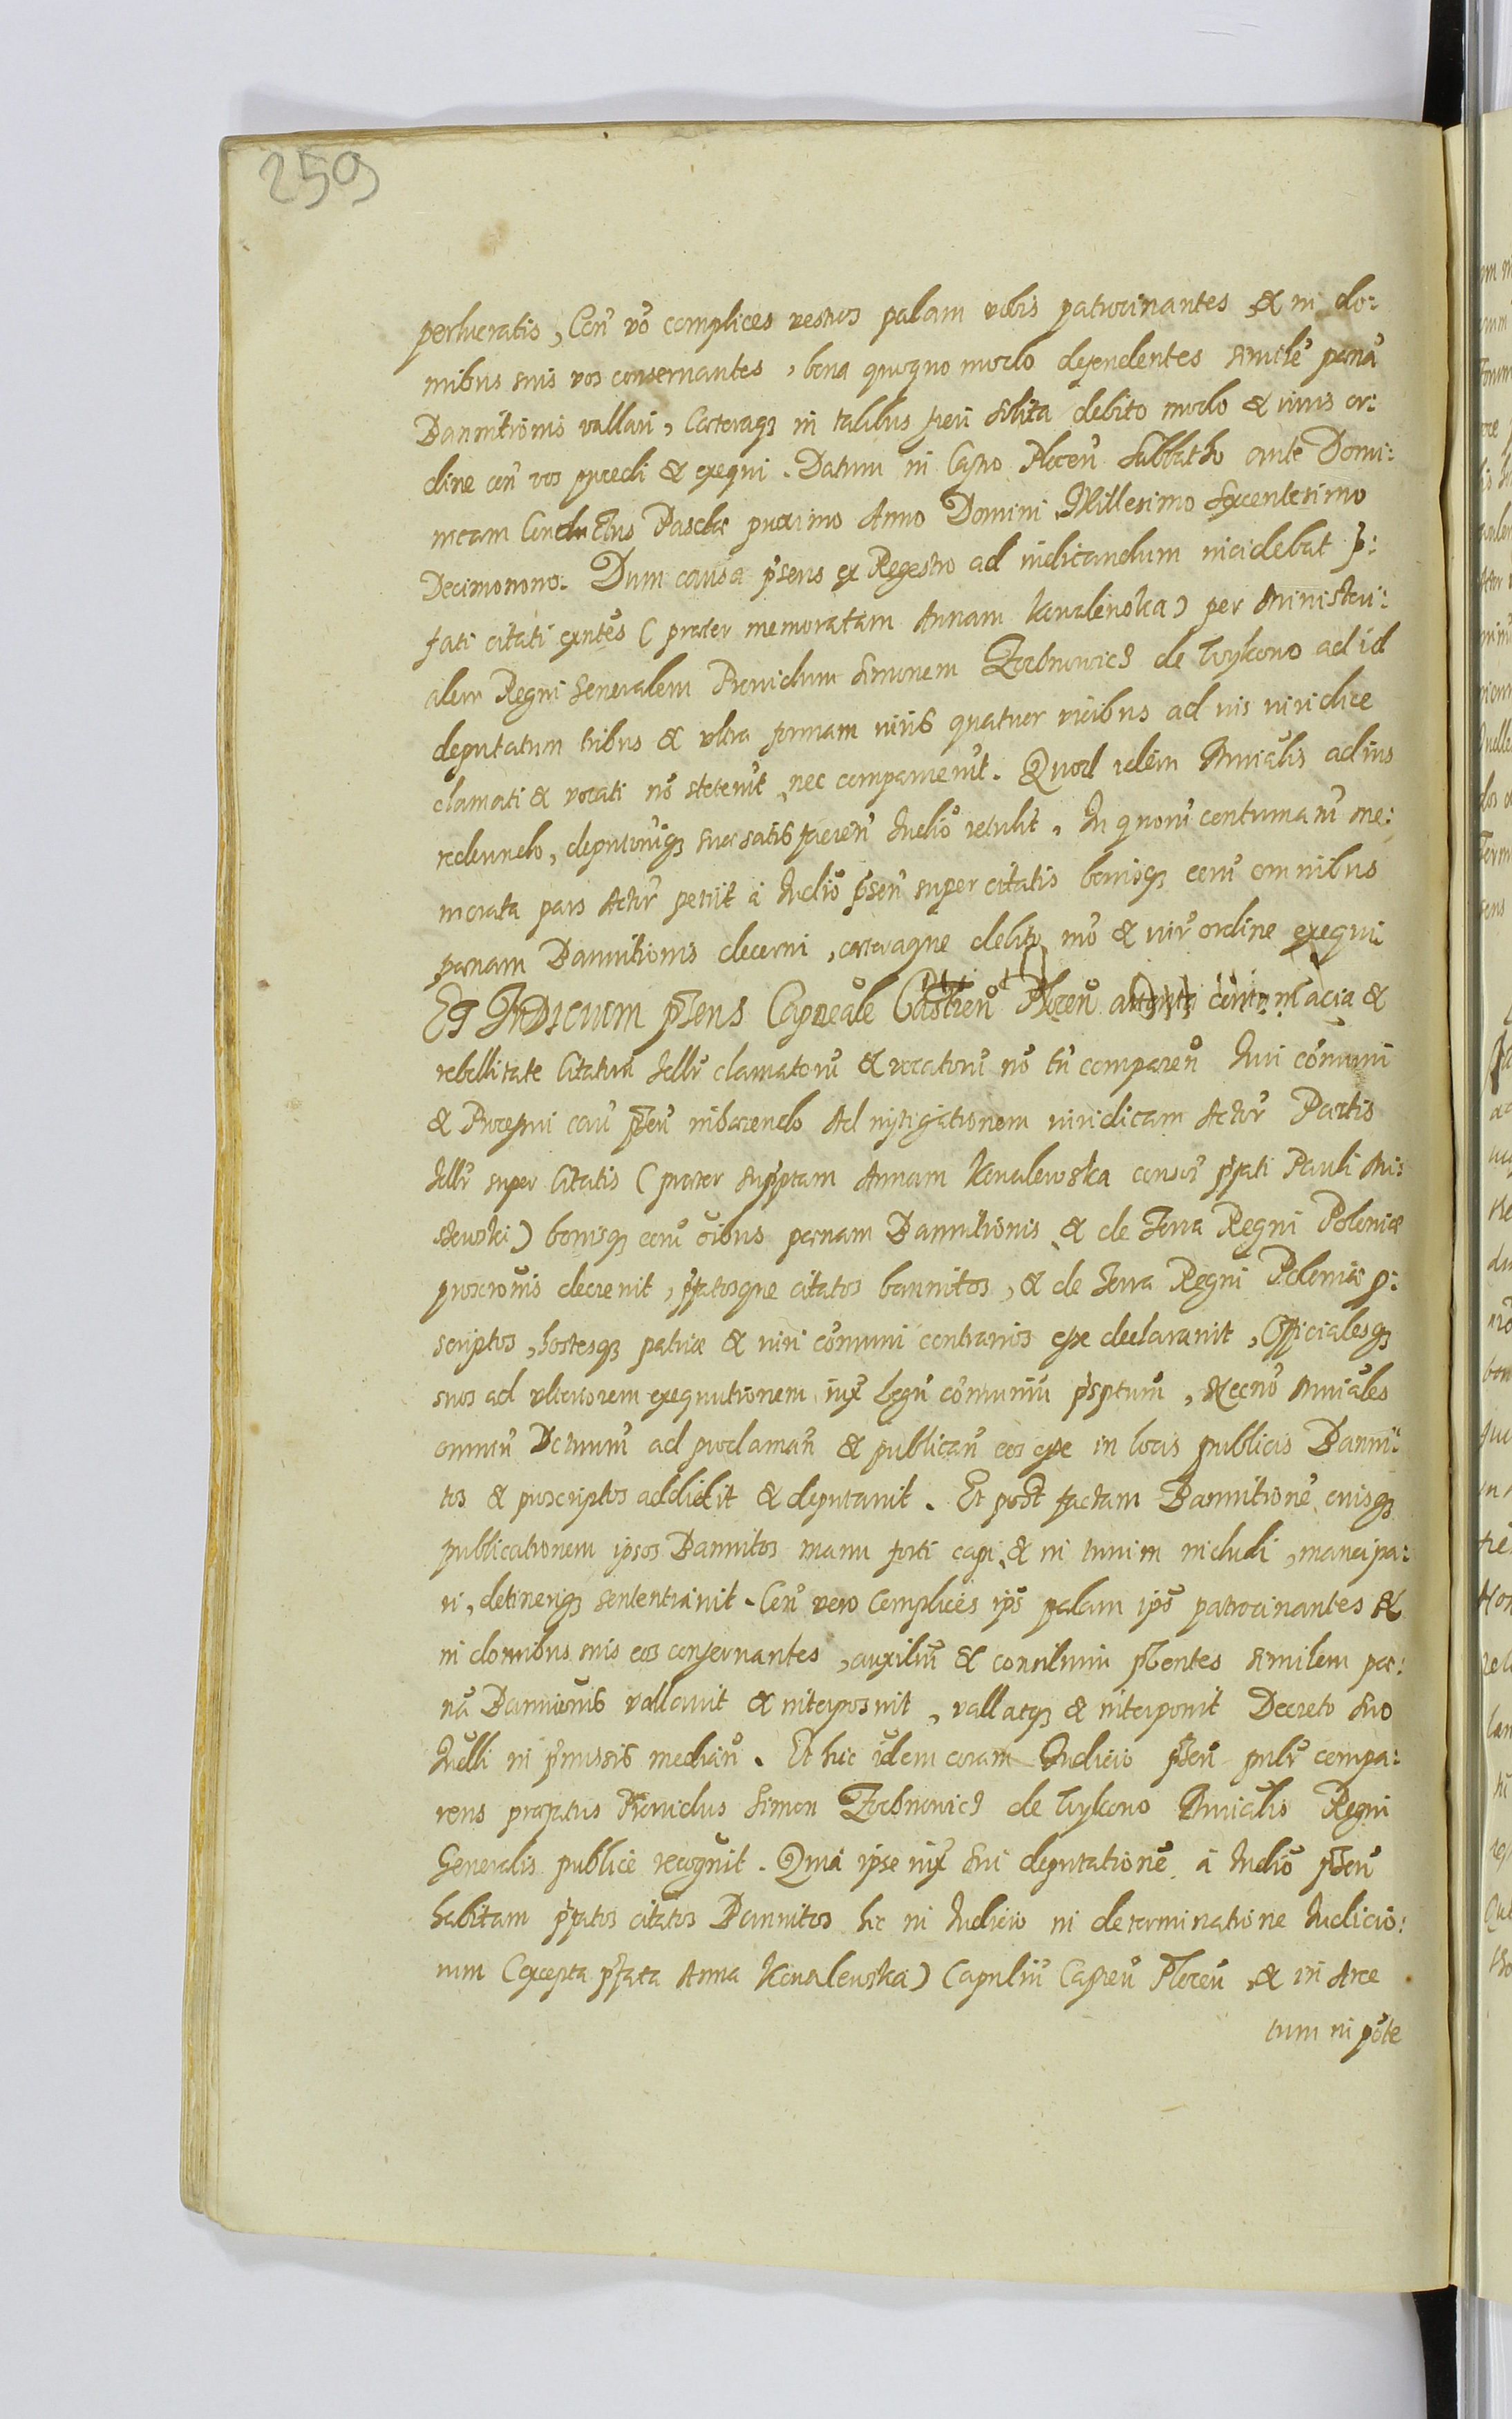 259
perlucratis, Con̄ vō complices vestros palam vobis patrocinantes, & in do:
mibus suis vos conservantes, bona quoquo modo defendentes simile pœnā
Bannitionis vallari, Cæteraq in talibus fieri solita debito modo & iuris or:
dine con̄ vos procedi & exequi. Datum in Castro Plocen̄ Sabbatho ante Domi:
nicam Conductus Paschæ proximo Anno Domini Millesimo Sexcentesimo
Decimonono. Dum causa pn̄sens ex Regestro ad iudicandum incidebat p:
fati citati exn̄tes (præter memoratam Annam Kovalewska) per Ministeri:
alem Regni Generalem Providum Simonem de Wykowo ad id
deputatum tribus & ultra formam iuris quatuor vicibus ad ius iuridice
clamati & vocati nō steterūt, nec comparuerūt. Quod idem Mn̄rialis ad ius
redeundo, deputoniq suæ satisfacien̄ Iudiō retulit. In quorū contumaciā me:
morata pars Actor̄ petiit a Iudiō pn̄sen̄ super citatis bonisq eorū omnibus
pœnam Bannitionis decerni, cæteraque debito mō & iur̄ ordine exequi.
Et Iudicium pn̄sens Capneale Castren̄ Plocen̄ attenta contumacia &
rebellitate Citatorū Sellr̄ clamatorū & vocatorū nō tn̄ comparen̄ Iuri cōmuni
& Processui cau pn̄sen̄ inhærendo Ad instigationem iuridicam Actor̄ Partis
Sellr̄ super Citatis (præter supptam Annam Kovalewska consor̄ pfati Pauli Mis:
siewski) bonisq eorū oibus pœnam Bannitionis & de Terra Regni Poloniæ
proscronis decrevit, pfatosque citatos bannitos, & de terra Regni Poloniæ p:
scriptos, hostesq patriæ & iuri cōmuni contrarios esse declaravit, Officialesq
suos ad ulteriorem exequutionem iux Legū cōmuniū psptum, Necnō Mn̄riales
omnium ad proclaman̄ & publican̄ eos esse in locis publicis Banni:
tos & proscriptos addidit & deputavit. Et post factam Bannitionē eiusq
publicationem ipsos Bannitos manu forti capi, & in turrim includi, mancipa:
ri, detineriq sententiavit. Con̄ vero Complices ips palam ips patrocinantes &
in domibus suis eos conservantes, auxiliū & consilium pn̄tentes similem pœ:
nā Banniōnis vallavit & interposuit, vallatq & interponit Decreto suo
Iudlli in pmissis median̄. Et hic idem coram Iudicio pn̄sen̄ pnlr̄ compa:
rens præfatus Providus Simon de Wykowo Mn̄rialis Regni
Generalis publice recognit. Quia ipse iux sui deputationē a Iudiō pn̄sen̄
habitam pfatos citatos Bannitos hic in Iudicio in determinatione Iudicio:
rum (excepta pfata Anna Kovalewska) Capnliū Castren̄ Plocen̄, & in Arce
tum in pōte